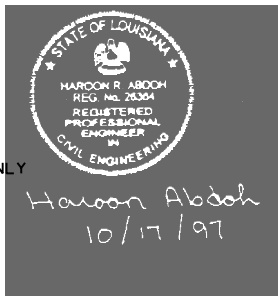 STATE OF LOUISIANA
HAROON R. ABDOH
REG. No. 26364
REGISTERED
PROFESSIONAL
ENGINEER
IN
CIVIL ENGINEERING
NLY
Haroon Abdoh
10/17/97